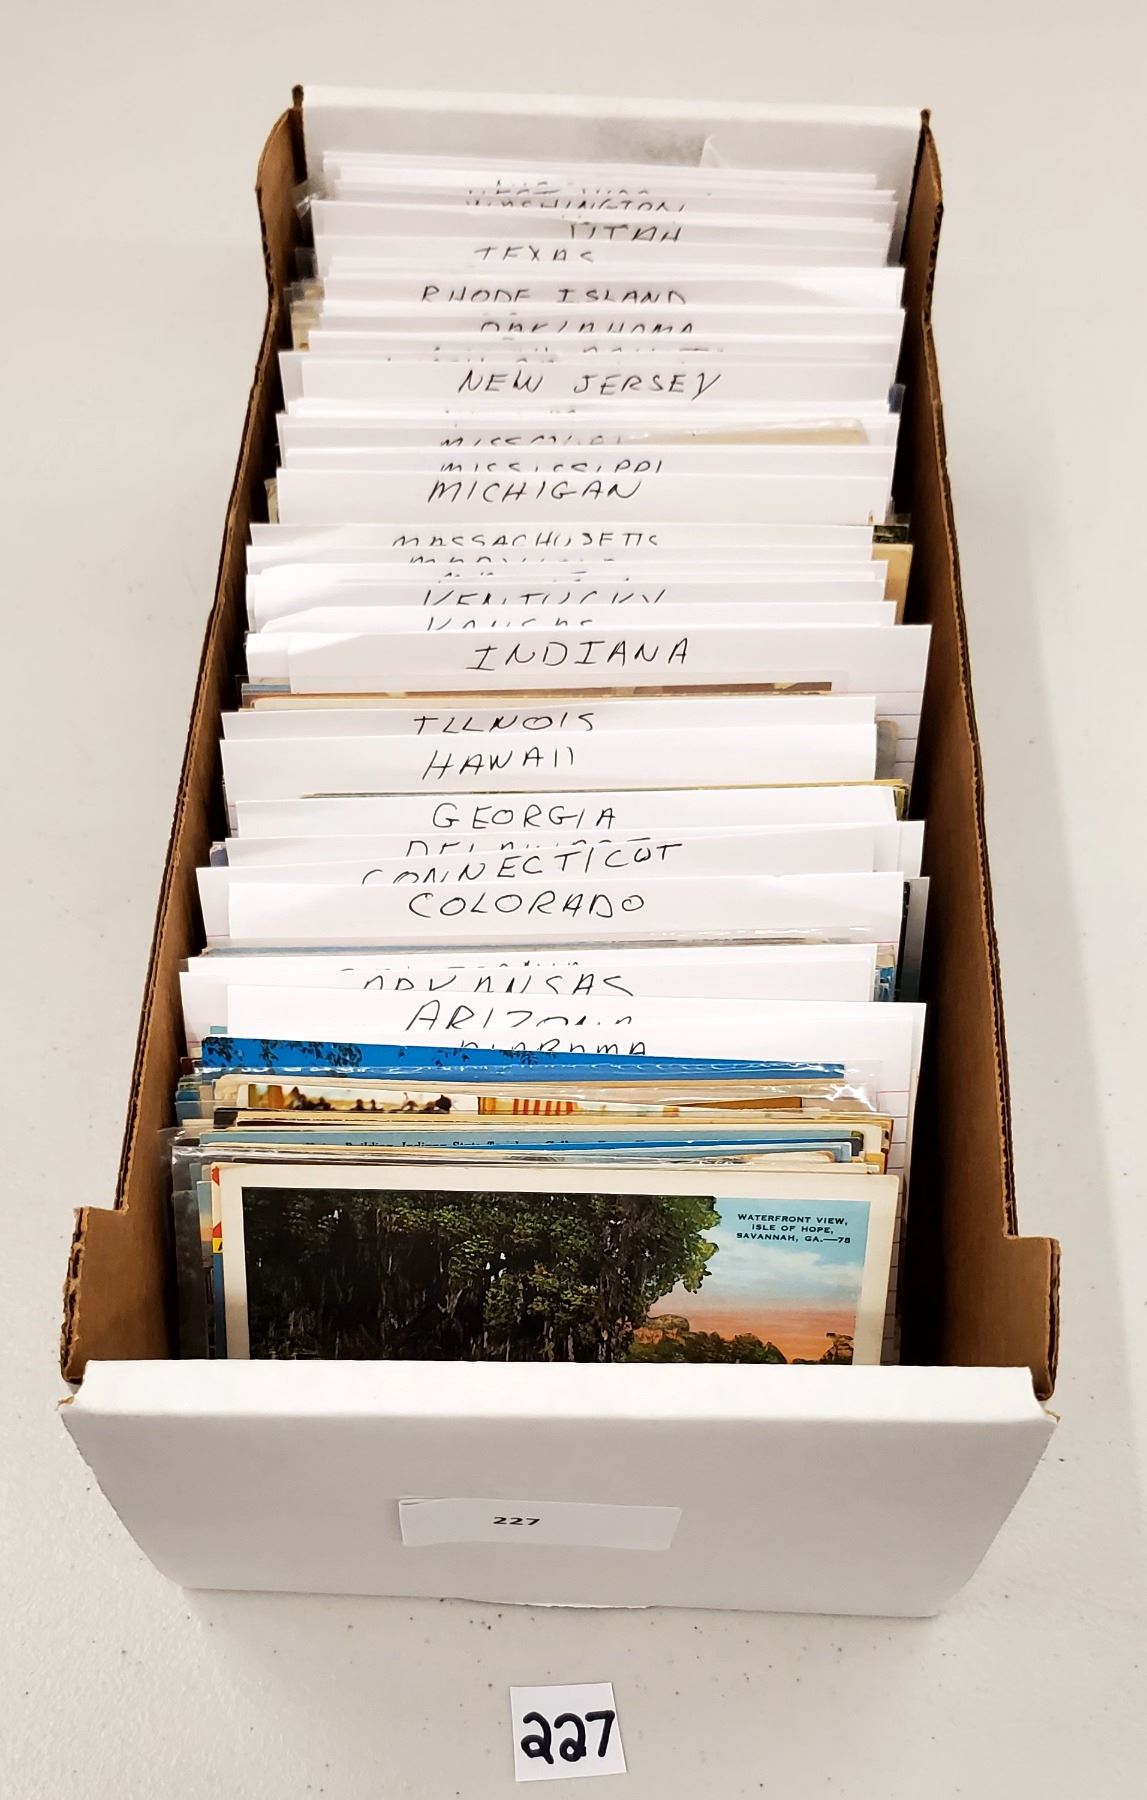 WASHINGTON
UTAH
TEXAS
RHODE ISLAND
OKLAHOMA
NEW JERSEY
MISSOURI
MISSISSIPPI
MICHIGAN
MASSACHUSETTS
KENTUCKY
KANSAS
INDIANA
ILLNOIS
HAWAII
GEORGIA
DELAWARE
CONNECTICUT
COLORADO
ARKANSAS
ARIZONA
ALABAMA
Building, Indiana State
WATERFRONT VIEW,
ISLE OF HOPE,
SAVANNAH, GA.—78
227
227